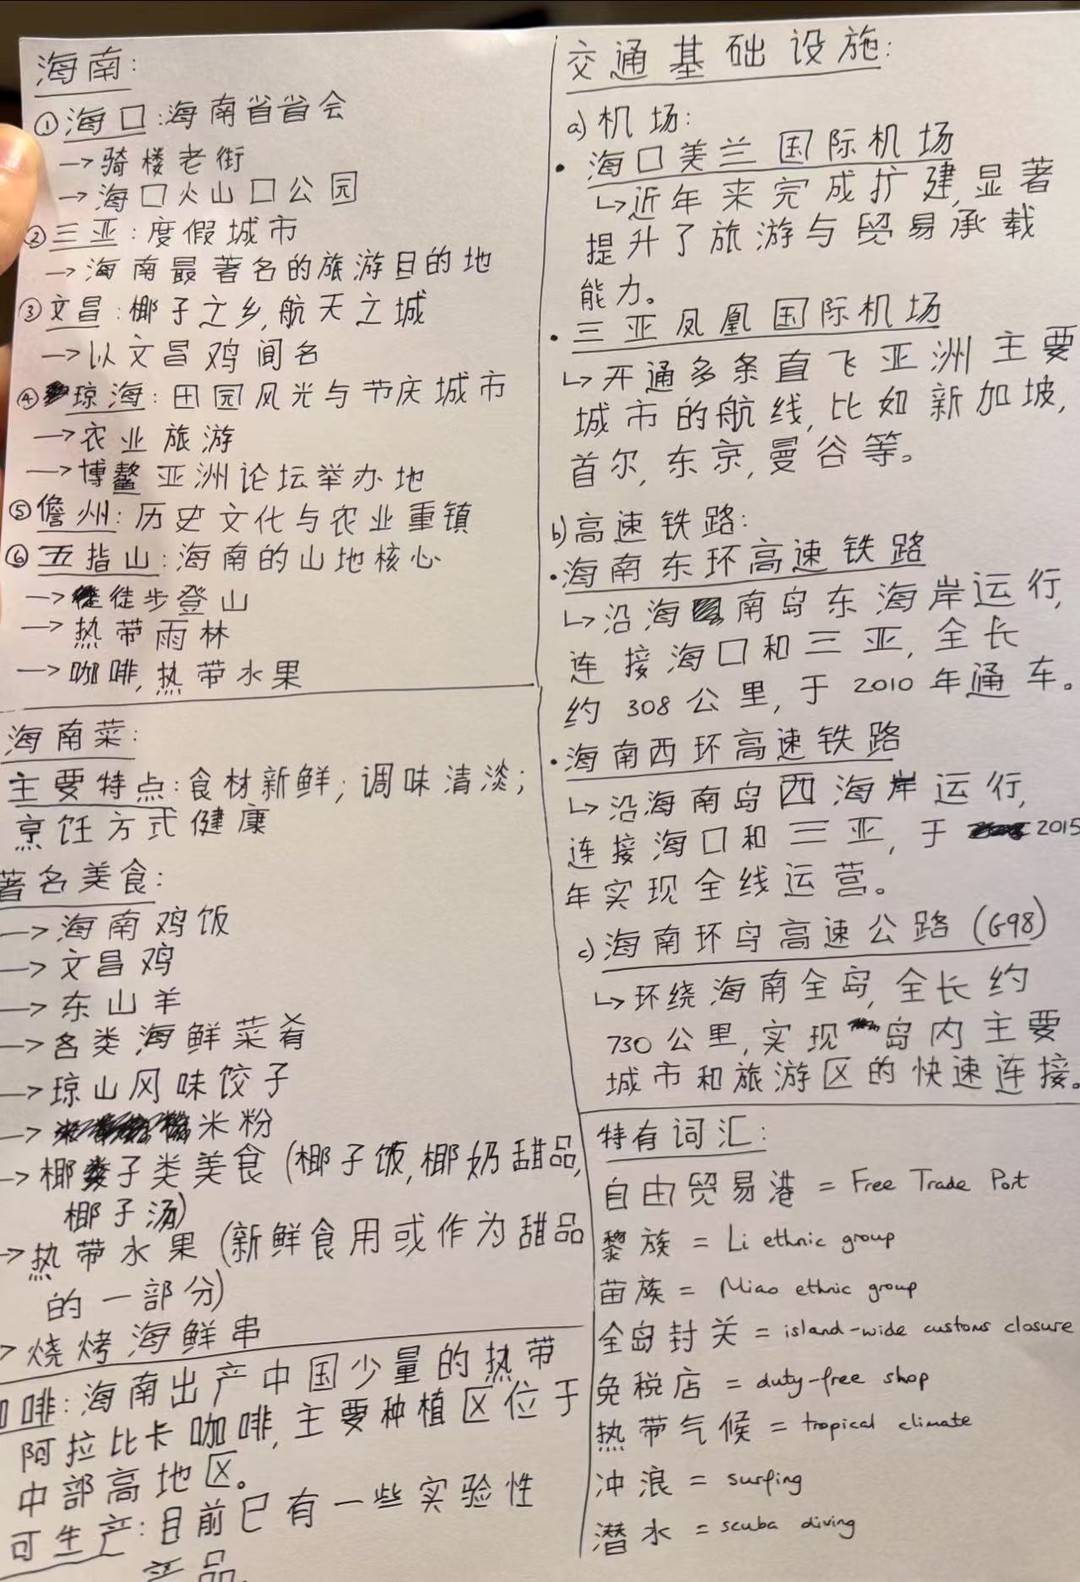 海南:
①海口:海南省省会
→骑楼老街
→海口火山口公园
②三亚:度假城市
→海南最著名的旅游目的地
③文昌:椰子之乡,航天之城
→以文昌鸡闻名
④琼海:田园风光与节庆城市
→农业旅游
→博鳌亚洲论坛举办地
⑤儋州:历史文化与农业重镇
⑥五指山:海南的山地核心
→徒步登山
→热带雨林
→咖啡,热带水果
海南菜:
主要特点:食材新鲜;调味清淡;
烹饪方式健康
著名美食:
→海南鸡饭
→文昌鸡
→东山羊
→各类海鲜菜肴
→琼山风味饺子
→米粉
→椰子类美食(椰子饭,椰奶甜品,
椰子汤)
→热带水果(新鲜食用或作为甜品
的一部分)
→烧烤海鲜串
啡:海南出产中国少量的热带
阿拉比卡咖啡,主要种植区位于
中部高地区。
可生产:目前已有一些实验性
产品
交通基础设施:
a)机场:
·海口美兰国际机场
↳近年来完成扩建,显著
提升了旅游与贸易承载
能力。
·三亚凤凰国际机场
↳开通多条直飞亚洲主要
城市的航线,比如新加坡,
首尔,东京,曼谷等。
b)高速铁路:
·海南东环高速铁路
↳沿海南岛东海岸运行,
连接海口和三亚,全长
约308公里,于2010年通车。
·海南西环高速铁路
↳沿海南岛西海岸运行,
连接海口和三亚,于2015
年实现全线运营。
c)海南环岛高速公路(G98)
↳环绕海南全岛,全长约
730公里,实现岛内主要
城市和旅游区的快速连接。
特有词汇:
自由贸易港 = Free Trade Port
黎族 = Li ethnic group
苗族 = Miao ethnic group
全岛封关 = island-wide customs closure
免税店 = duty-free shop
热带气候 = tropical climate
冲浪 = surfing
潜水 = scuba diving